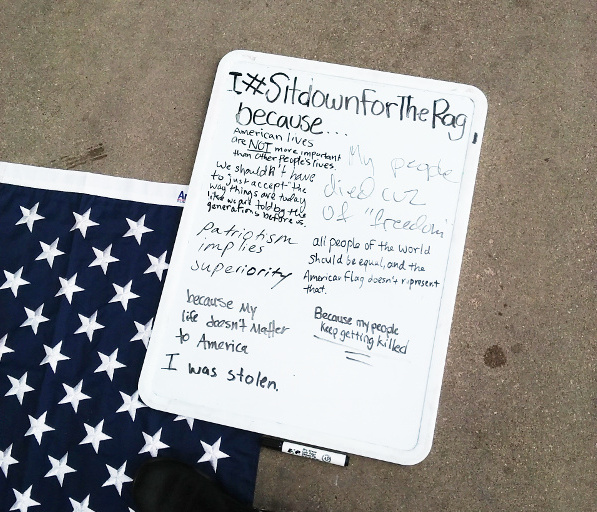 I #SitdownForTheRag
because...
American lives
are NOT more important
than other people's lives.
We shouldn't have
to just accept the
way things are today
like we are told by the
generations before us.
Patriotism
implies
superiority
because My
life doesn't Matter
to America
I was stolen.
My people
died cuz
of "freedom"
all people of the world
should be equal, and the
American flag doesn't represent
that.
Because my people
keep getting killed